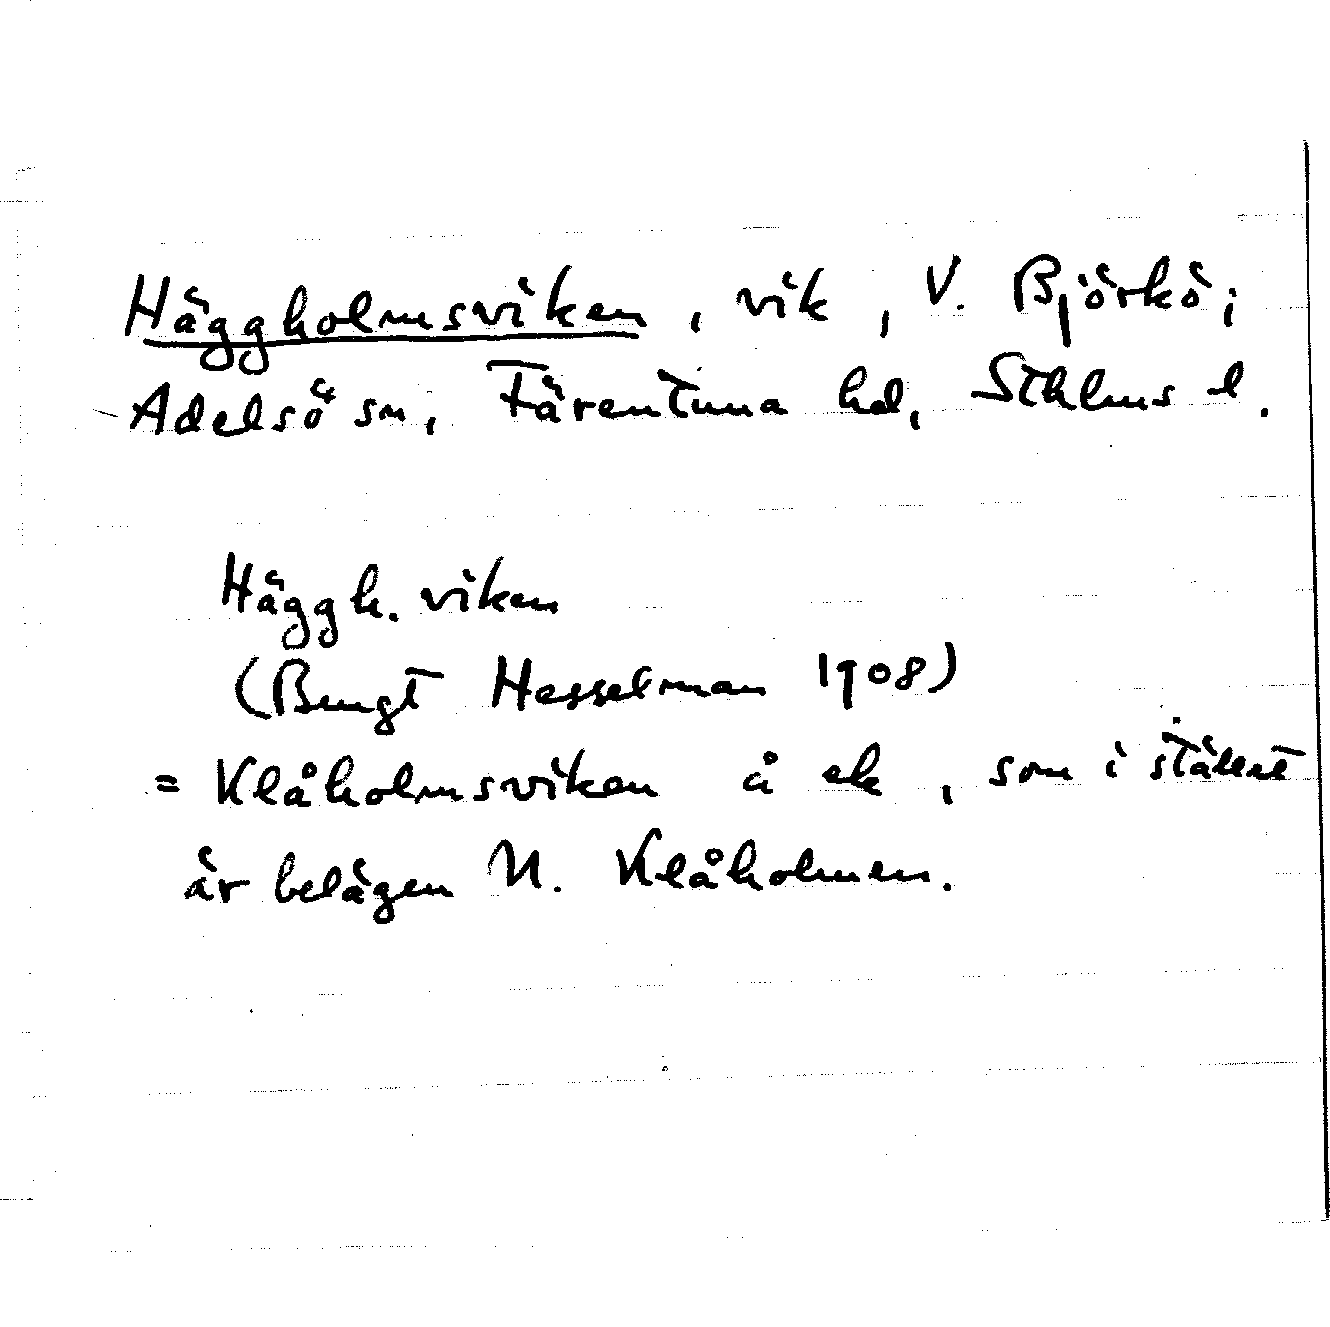 Häggholmsviken, vik, V. Björkö;
Adelsö sn, Färentuna hd, Sthlms l.
Häggh. viken
(Bengt Hesselman 1908)
= Klåholmsviken å ek, som i stället
är belägen N. Klåholmen.